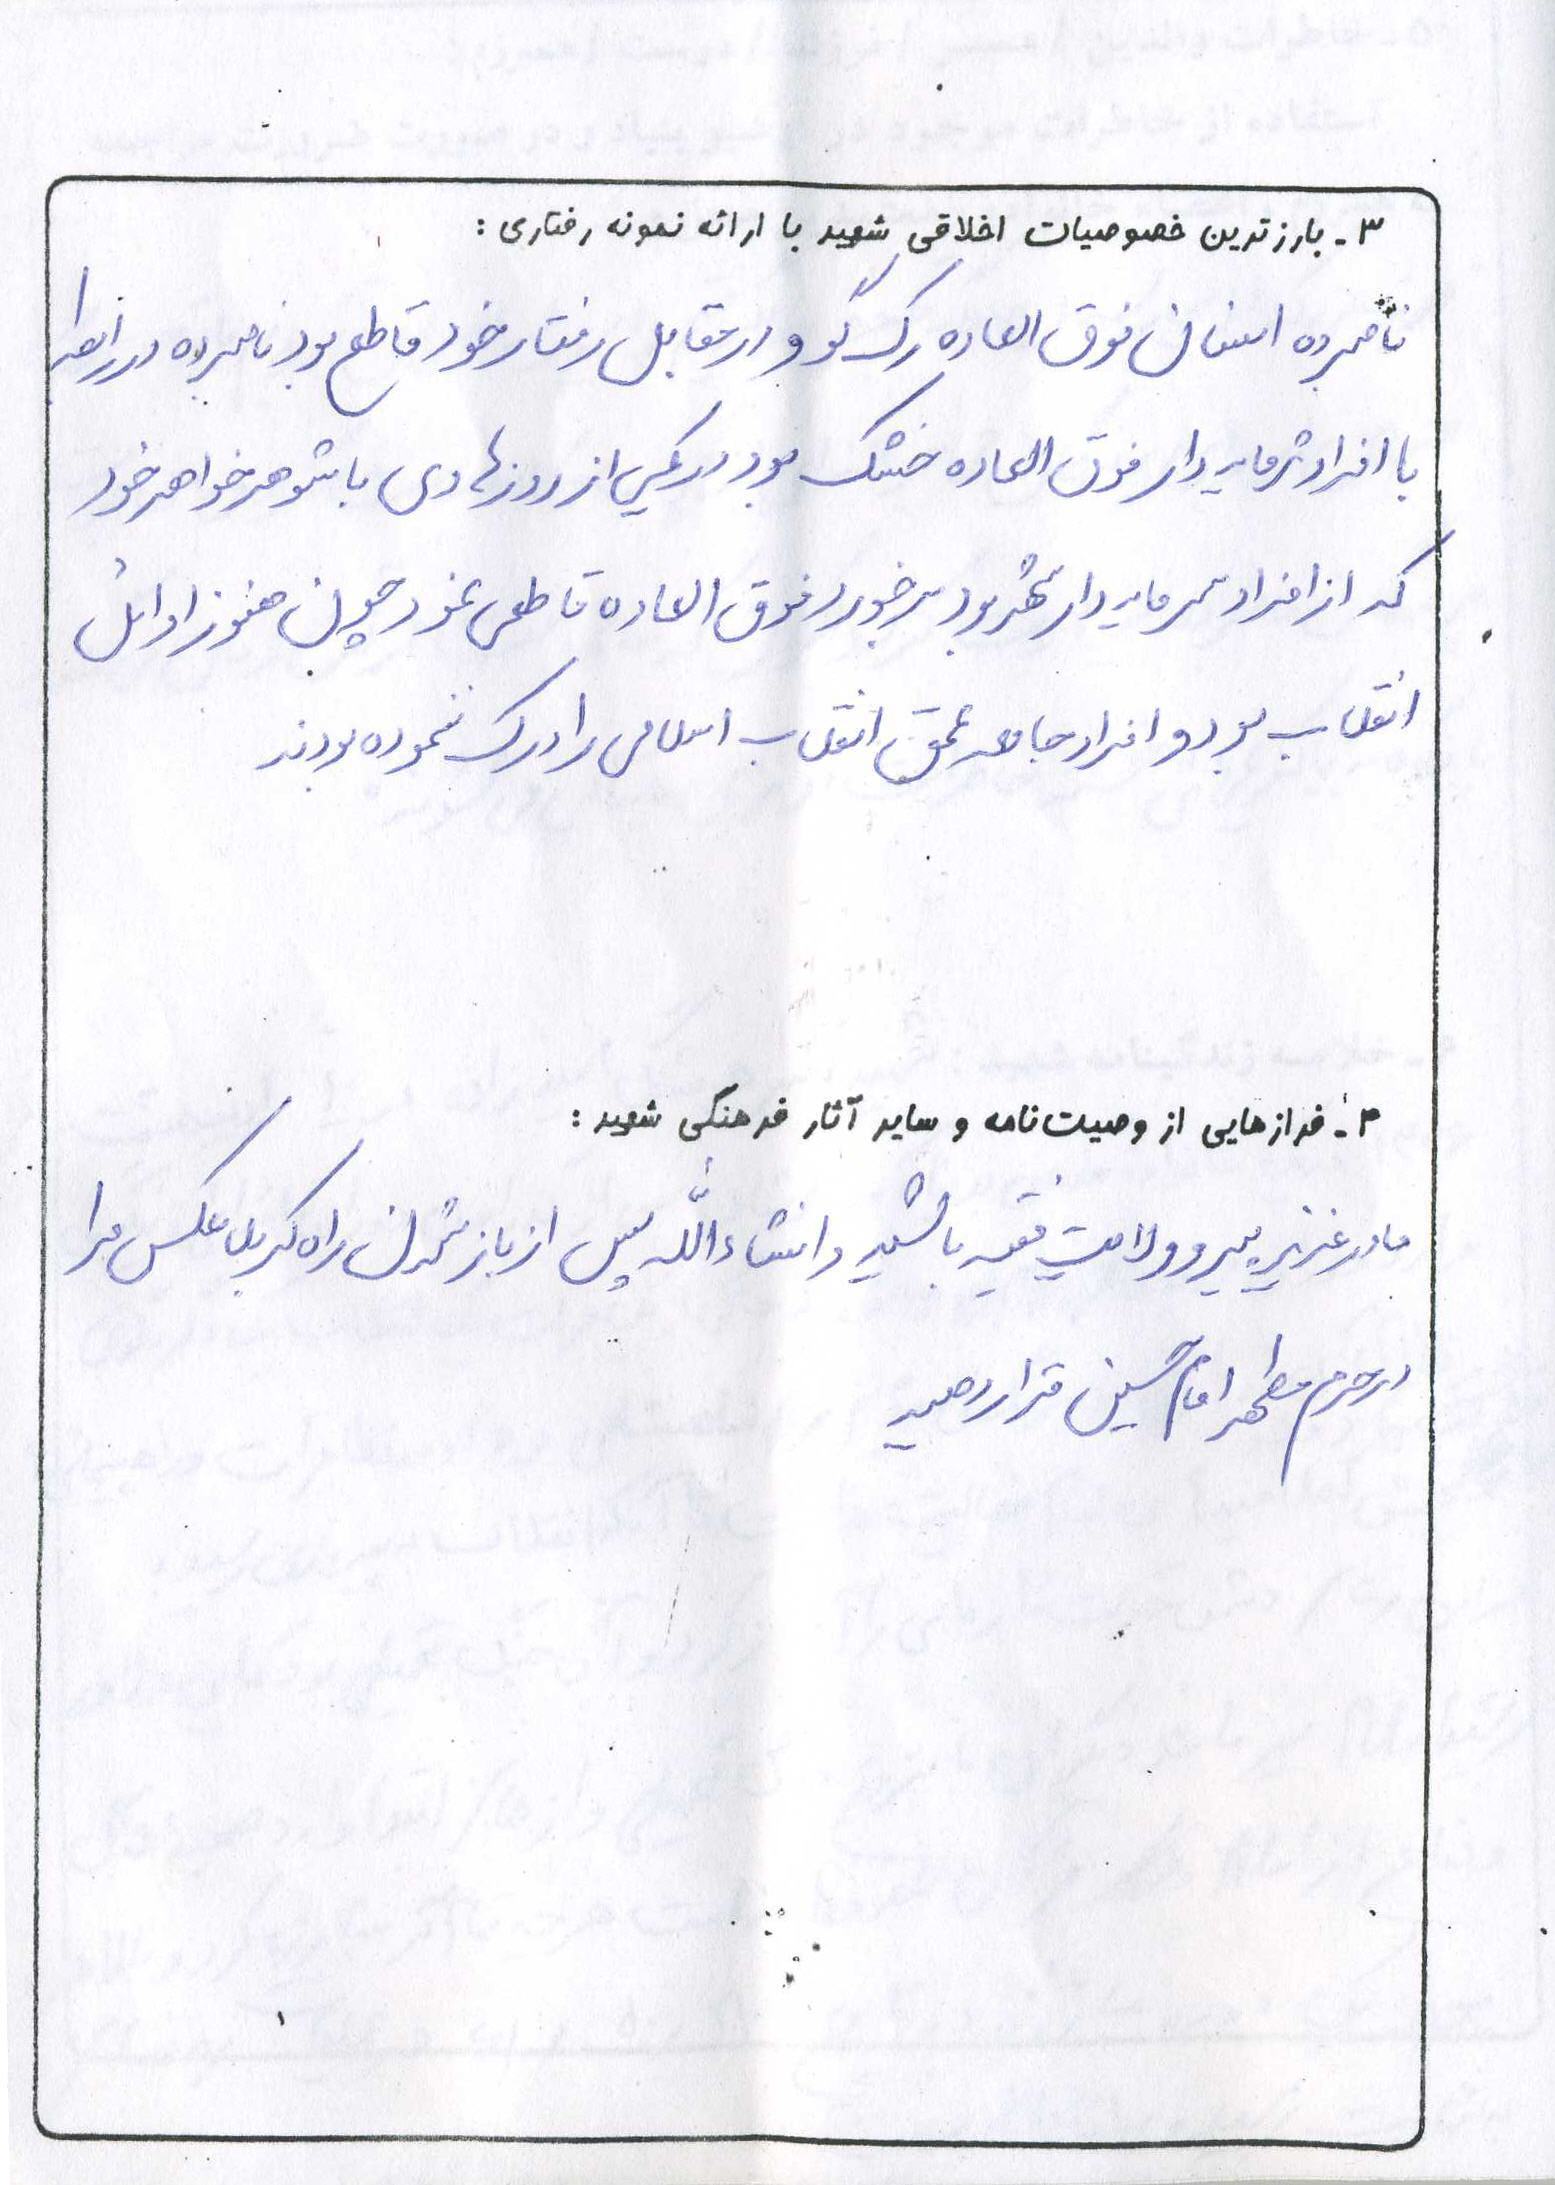 ۳- بارزترین خصوصیات اخلاقی شهید با ارائه نمونه رفتاری :
نامبرده انسانی فوق العاده رک گو و در مقابل رفتار خود قاطع بود نامبرده در رابطه
با افراد سرمایه دار فوق العاده خشک بود در یکی از روزها وی با شوهر خواهر خود
که از افراد سرمایه دار شهر بود برخورد فوق العاده قاطعی نمود چون هنوز اوائل
انقلاب بود و افراد جامعه عمق انقلاب اسلامی را درک ننموده بودند
۴- فرازهایی از وصیت‌نامه و سایر آثار فرهنگی شهید :
مادر عزیز پیرو ولایت فقیه باشید و انشاءالله پس از باز شدن راه کربلا عکس مرا
در حرم مطهر امام حسین قرار دهید